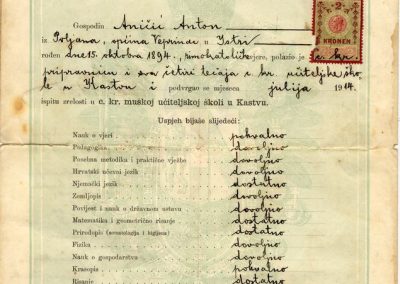 Gospodin Aničić Anton
iz Poljana, općina Veprinde u Istri
rođen dne 15. oktobra 1894., rimokatoličke vjere, polazio je c. kr.
pripravnicu i sva četiri tečaja c. kr. učiteljske ško-
le u Kastvu i podvrgao se mjeseca julija 1914.
ispitu zrelosti u c. kr. muškoj učiteljskoj školi u Kastvu.
Uspjeh bijaše slijedeći:
Nauk o vjeri pohvalno
Pedagogika dovoljno
Posebna metodika i praktične vježbe dovoljno
Hrvatski učevni jezik dovoljno
Njemački jezik dostatno
Zemljopis dovoljno
Povijest i nauk o državnom ustavu dovoljno
Matematika i geometrično risanje dostatno
Prirodopis (somatologija i higijena) dostatno
Fizika dovoljno
Nauk o gospodarstvu dovoljno
Krasopis pohvalno
Risanje dostatno
2 2
KRONEN